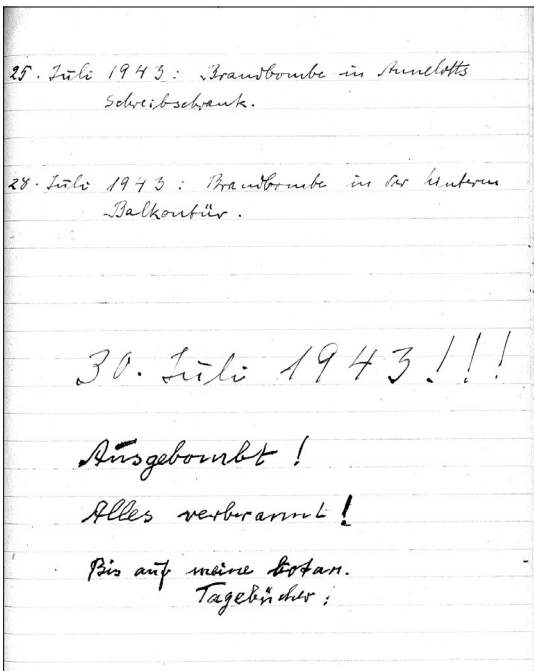 25. Juli 1943: Brandbombe in Annelotts
Schreibschrank.
28. Juli 1943: Brandbombe in der hinteren
Balkontür.
30. Juli 1943!!!
Ausgebombt!
Alles verbrannt!
Bis auf meine botan.
Tagebücher!